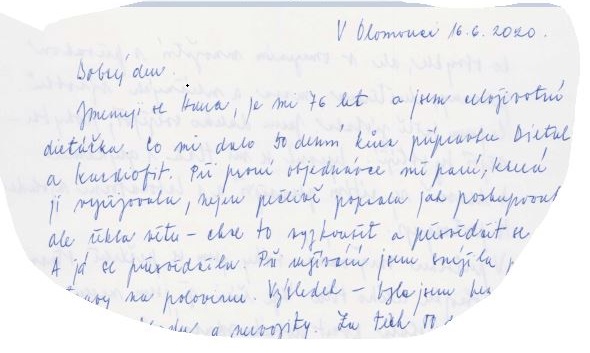 V Olomouci 16.6.2020.
Dobrý den
Jmenuji se Anna, je mi 76 let a jsem celoživotní
dietářka. Co mi dalo 50 denní kúra přípravku Dietal
a Kardiofit. Při první objednávce mi paní, která
ji vyřizovala, nejen pečlivě popsala jak postupovat
ale řekla větu – chce to vyzkoušet a přesvědčit se
A já se přesvědčila. Při užívání jsem snížila
na polovinu. Výsledek – byla jsem bez
a nervozity. Za těch